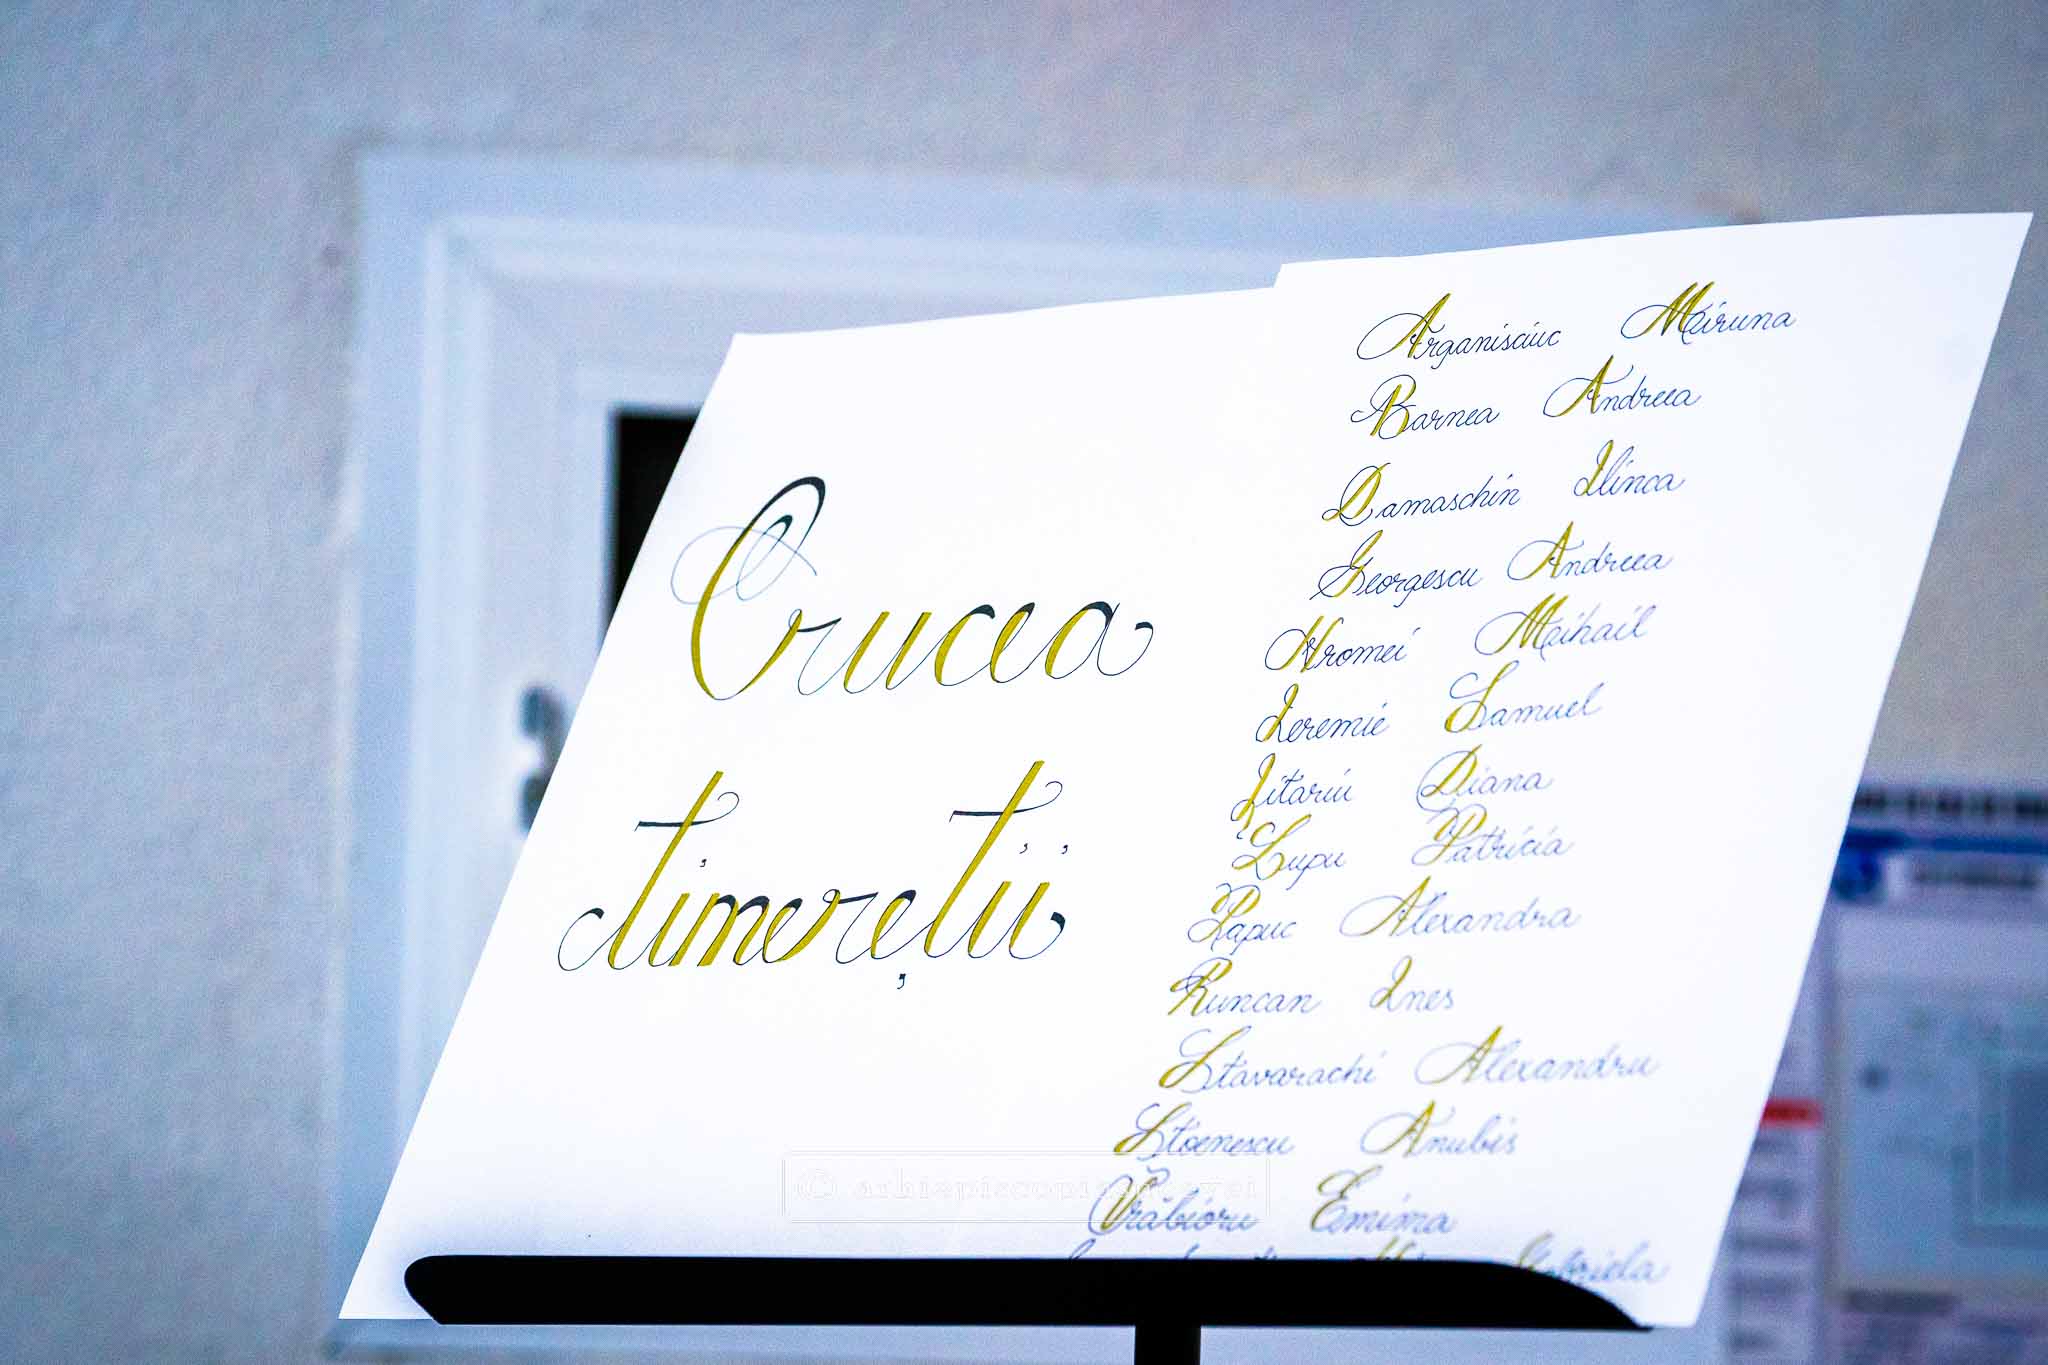 Crucea
tinereții
Arganisciuc Miruna
Barnea Andreea
Damaschin Ilinca
Georgescu Andreea
Hromei Mihail
Ieremie Samuel
Jitariu Diana
Lupu Patricia
Papuc Alexandra
Runcan Ines
Stavarachi Alexandru
Stoenescu Anubis
Vrabioru Emima
Gabriela